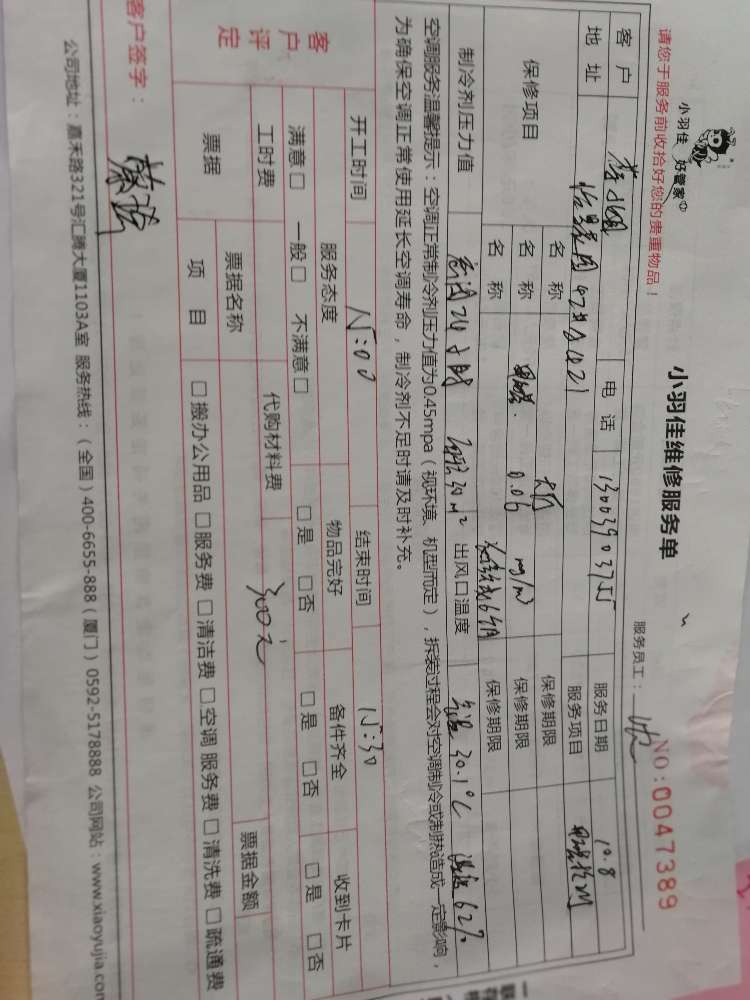 小羽佳 好管家
小羽佳维修服务单
NO:0047389
请您于服务前收拾好您的贵重物品！
服务员工：
客户 电话 13003903755 服务日期 10.8
地址 服务项目 甲醛检测
保修项目 名称 大厅 保修期限
名称 甲醛: 0.06 mg/m³ 保修期限
名称 保修期限
制冷剂压力值 密闭24小时 30m² 出风口温度 室温30.1℃ 湿度62%
空调服务温馨提示：空调正常制冷剂压力值为0.45mpa（视环境、机型而定），拆装过程会对空调制冷或制热造成一定影响，
为确保空调正常使用延长空调寿命，制冷剂不足时请及时补充。
开工时间 15:00 结束时间 15:30
客户评定 服务态度 物品完好 备件齐全 收到卡片
满意□ 一般□ 不满意□ □是 □否 □是 □否 □是 □否
工时费 代购材料费 300元
票据 票据名称 票据金额
项目 □搬办公用品 □服务费 □清洁费 □空调服务费 □清洗费 □疏通费
客户签字：
公司地址：嘉禾路321号汇腾大厦1103A室 服务热线：（全国）400-6655-888（厦门）0592-5178888 公司网站：www.xiaoyujia.com